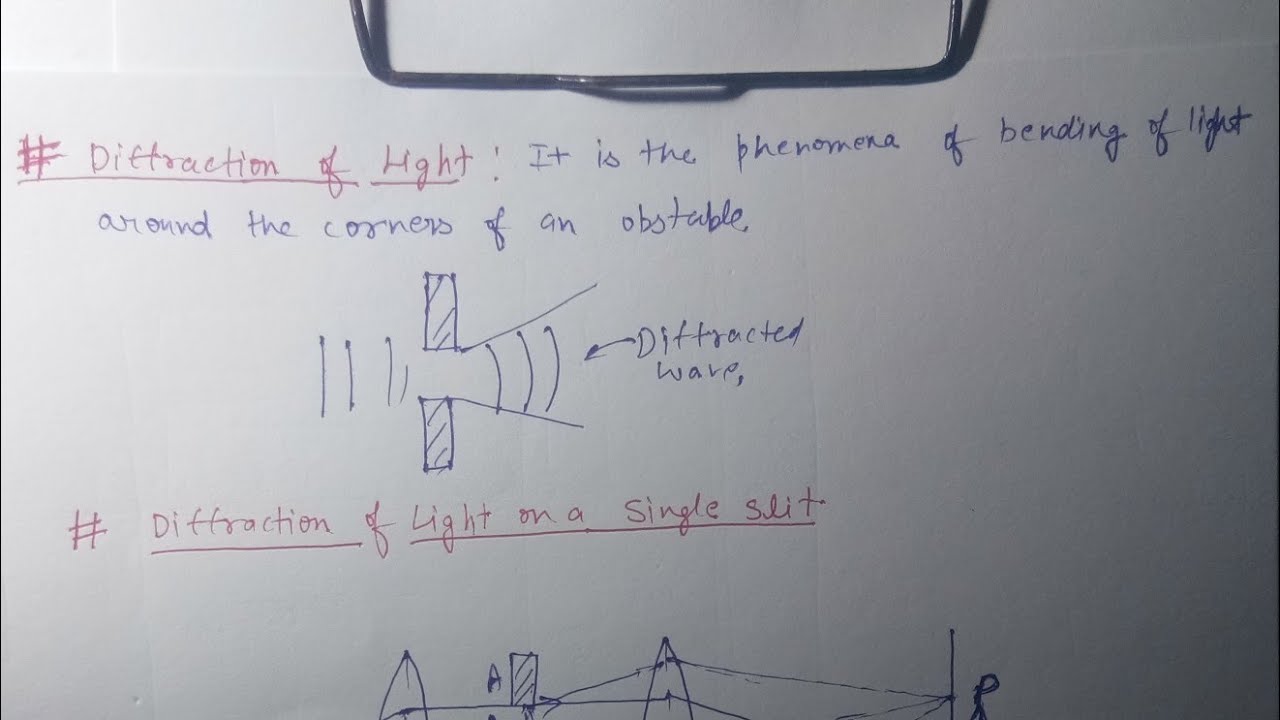 # Diffraction of Light : It is the phenomena of bending of light
around the corners of an obstable.
Diffracted
wave,
# Diffraction of Light on a Single slit.
A
P